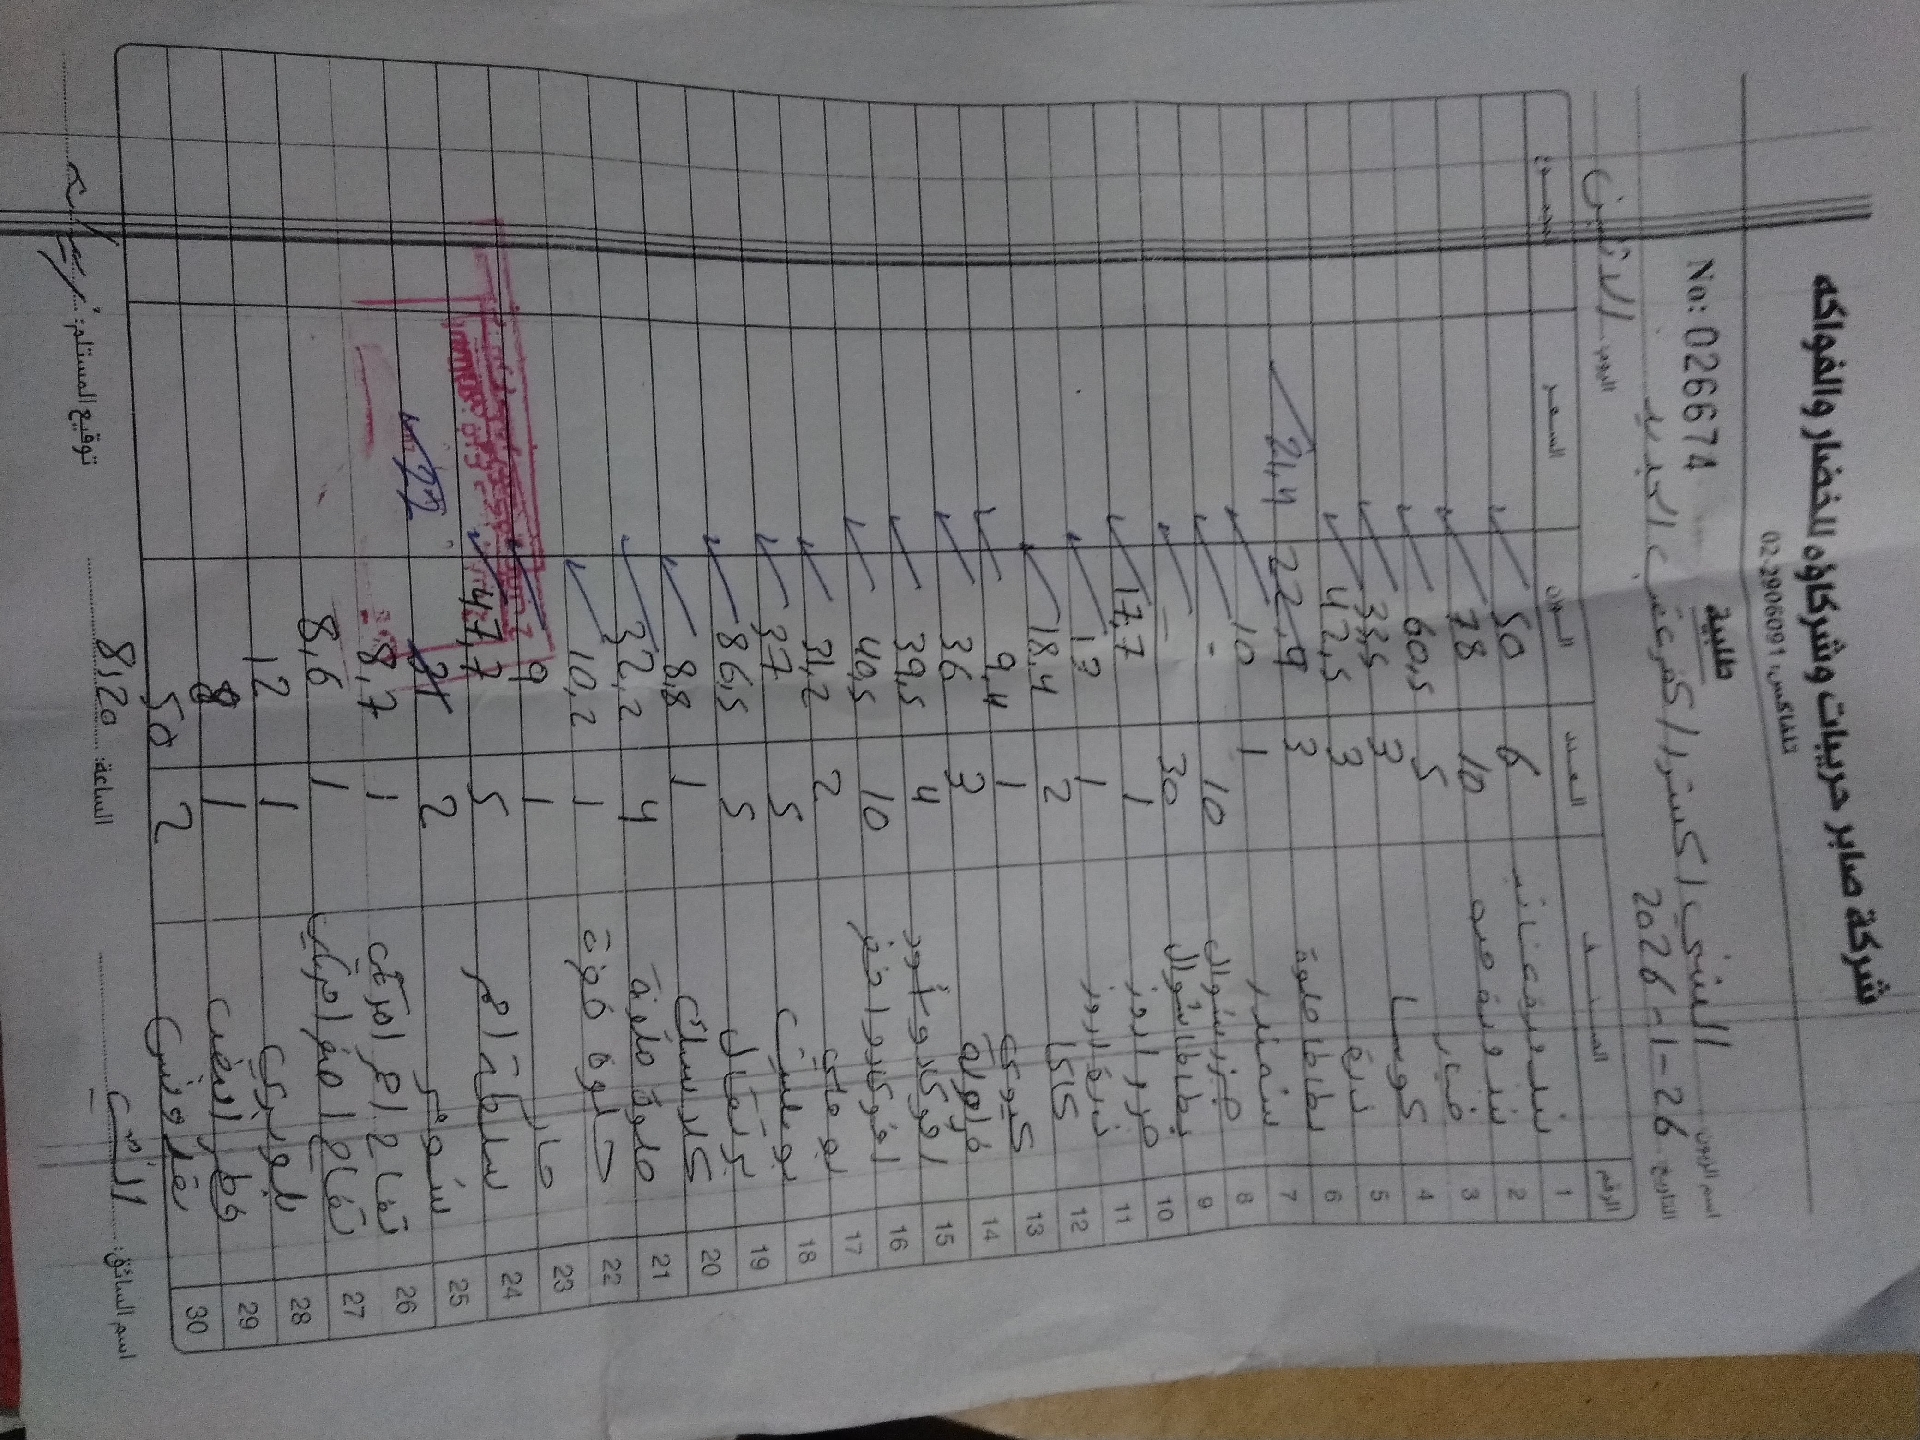 شركة صابر حريبات وشركاؤه للخضار والفواكه
تلفاكس: 02-2906091
طلبية
No: 0266674
اسم الزبون: السني اكسترا / كفر عقب الجديد
التاريخ: 2026-1-26 اليوم: الاثنين
الرقم الصنف العدد الوزن السعر المجموع
1 بندورة عناقيد 6 50
2 بندورة حبه 10 78
3 خيار 5 60,5
4 كوسا 3 33,5
5 ذرة 3 42,5
6 بطاطا حلوة 3 22,9 21,4
7 شمندر 1 10
8 جزر شوال 10 -
9 بطاطا شوال 30 -
10 1 17,7
11 1 13
12 كاكا 2 18,4
13 كيوي 1 9,4
14 فراولة 3 36
15 افوكادو اسود 4 39,5
16 افوكادو اخضر 10 40,5
17 بوملي 2 31,2
18 5 37
19 برتقال 5 86,5
20 1 8,8
21 4 32,2
22 1 10,2
23 حار 1 9
24 5 47,7
25 شومر 2 22
26 تفاح احمر امريكي 1 8,7
27 تفاح اصفر امريكي 1 8,6
28 بلوبيري 1 12
29 فطر ابيض 1 8
30 بقدونس 2 50
اسم السائق: الساعة: 8,20 توقيع المستلم: